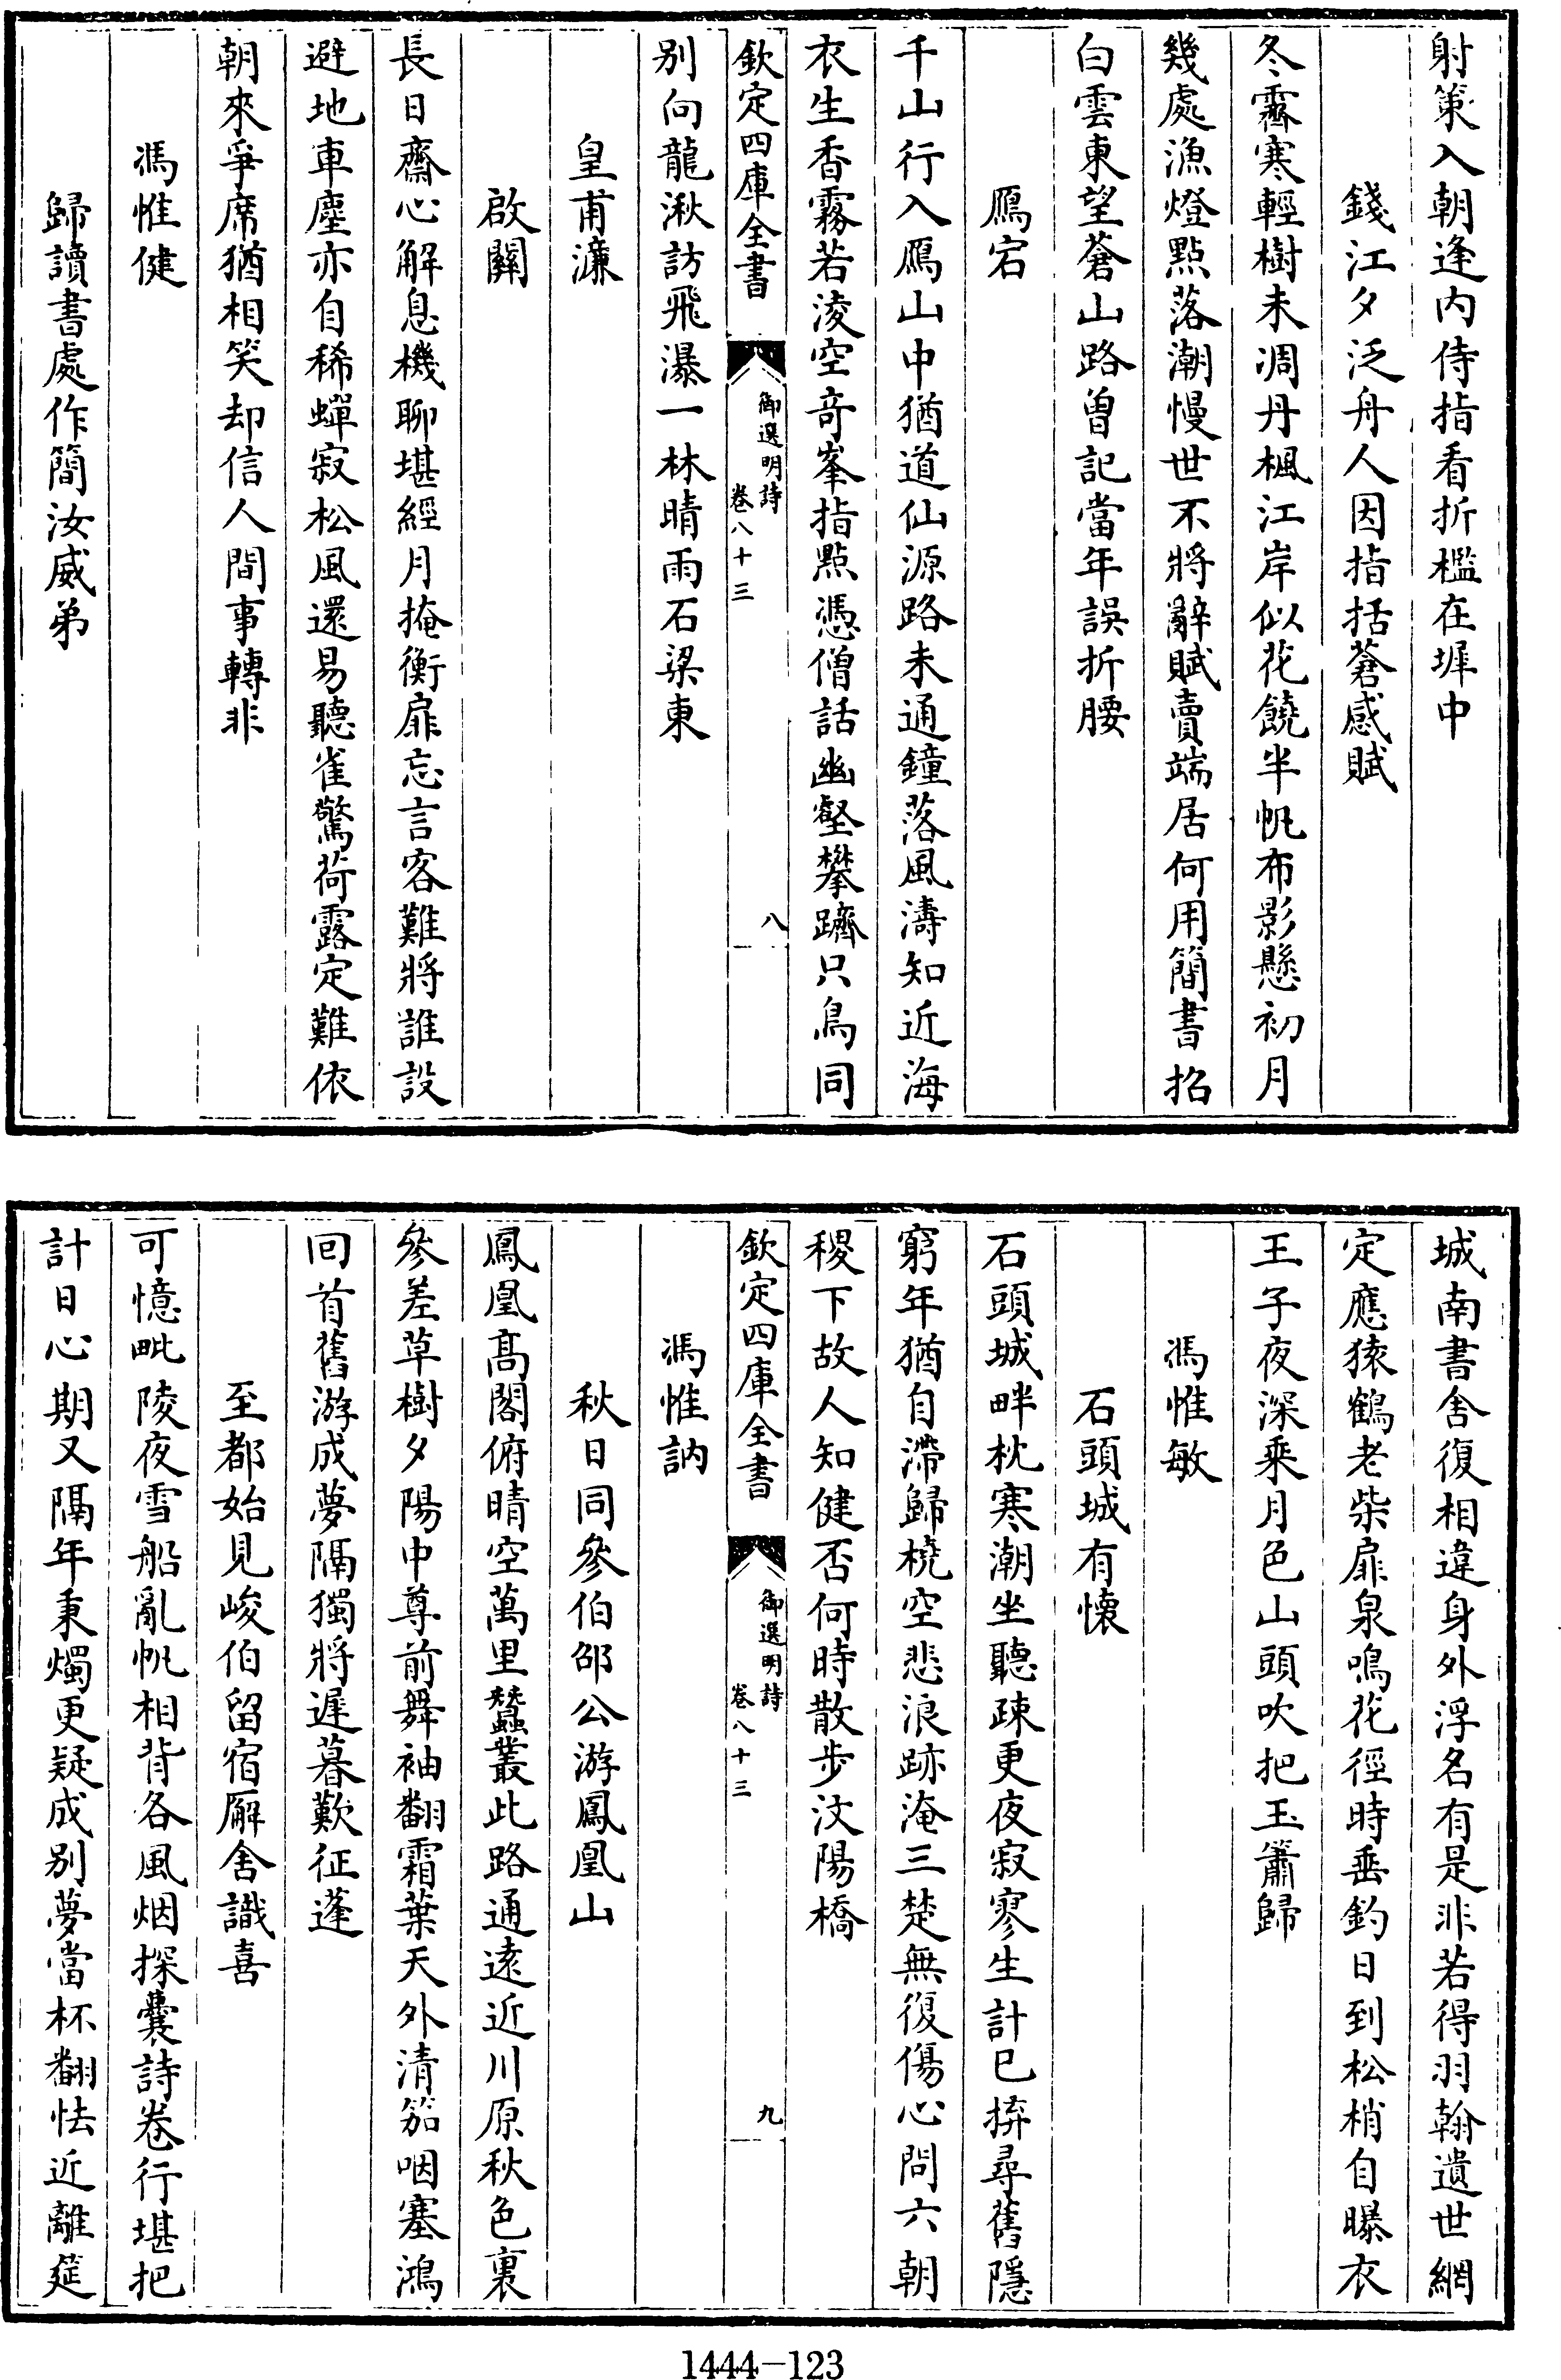 射策入朝逢内侍指看折檻在墀中
錢江夕泛舟人因指括蒼感賦
冬霽寒輕樹未凋丹楓江岸似花饒半帆布影懸初月
幾處漁燈點落潮慢世不將辭賦賣端居何用簡書招
白雲東望蒼山路曾記當年誤折腰
鴈宕
千山行入鴈山中猶道仙源路未通鐘落風濤知近海
衣生香霧若淩空竒峯指點憑僧話幽壑攀躋只鳥同
欽定四庫全書
御選明詩
卷八十三
八
别向龍湫訪飛瀑一林晴雨石梁東
皇甫濂
啟關
長日齋心解息機聊堪經月掩衡扉忘言客難將誰設
避地車塵亦自稀蟬寂松風還易聽雀驚荷露定難依
朝來爭席猶相笑却信人間事轉非
馮惟健
歸讀書處作簡汝威弟
城南書舍復相違身外浮名有是非若得羽翰遺世網
定應猿鶴老柴扉泉鳴花徑時垂釣日到松梢自曝衣
王子夜深乘月色山頭吹把玉簫歸
馮惟敏
石頭城有懷
石頭城畔枕寒潮坐聽疎更夜寂寥生計已拚尋舊隱
窮年猶自滯歸橈空悲浪跡淹三楚無復傷心問六朝
稷下故人知健否何時散步汶陽橋
欽定四庫全書
御選明詩
卷八十三
九
馮惟訥
秋日同參伯邵公游鳳凰山
鳳凰髙閣俯晴空萬里蠶叢此路通逺近川原秋色裏
參差草樹夕陽中尊前舞袖翻霜葉天外清笳咽塞鴻
回首舊游成夢隔獨將遲暮歎征蓬
至都始見峻伯留宿廨舍識喜
可憶毗陵夜雪船亂帆相背各風烟探囊詩卷行堪把
計日心期又隔年秉燭更疑成别夢當杯翻怯近離筵
1444-123